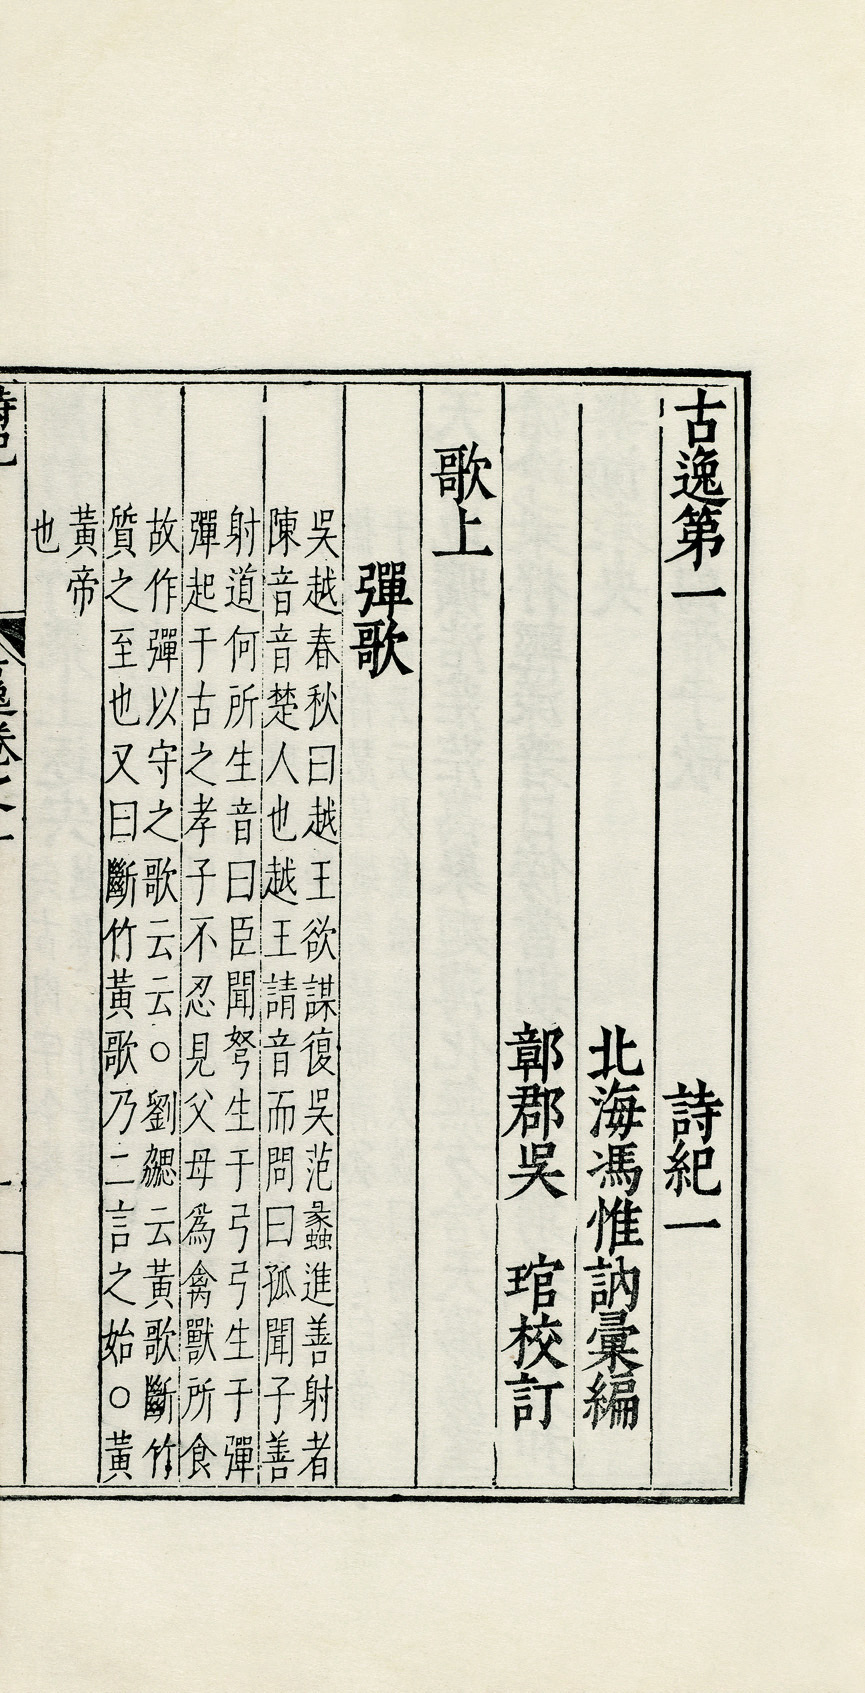 古逸第一　詩紀一
北海馮惟訥彙編
鄣郡吳　琯校訂
歌上
彈歌
吳越春秋曰越王欲謀復吳范蠡進善射者
陳音音楚人也越王請音而問曰孤聞子善
射道何所生音曰臣聞弩生于弓弓生于彈
彈起于古之孝子不忍見父母爲禽獸所食
故作彈以守之歌云云○劉勰云黃歌斷竹
質之至也又曰斷竹黃歌乃二言之始○黃
黃帝
也
詩紀　古逸卷之一　一